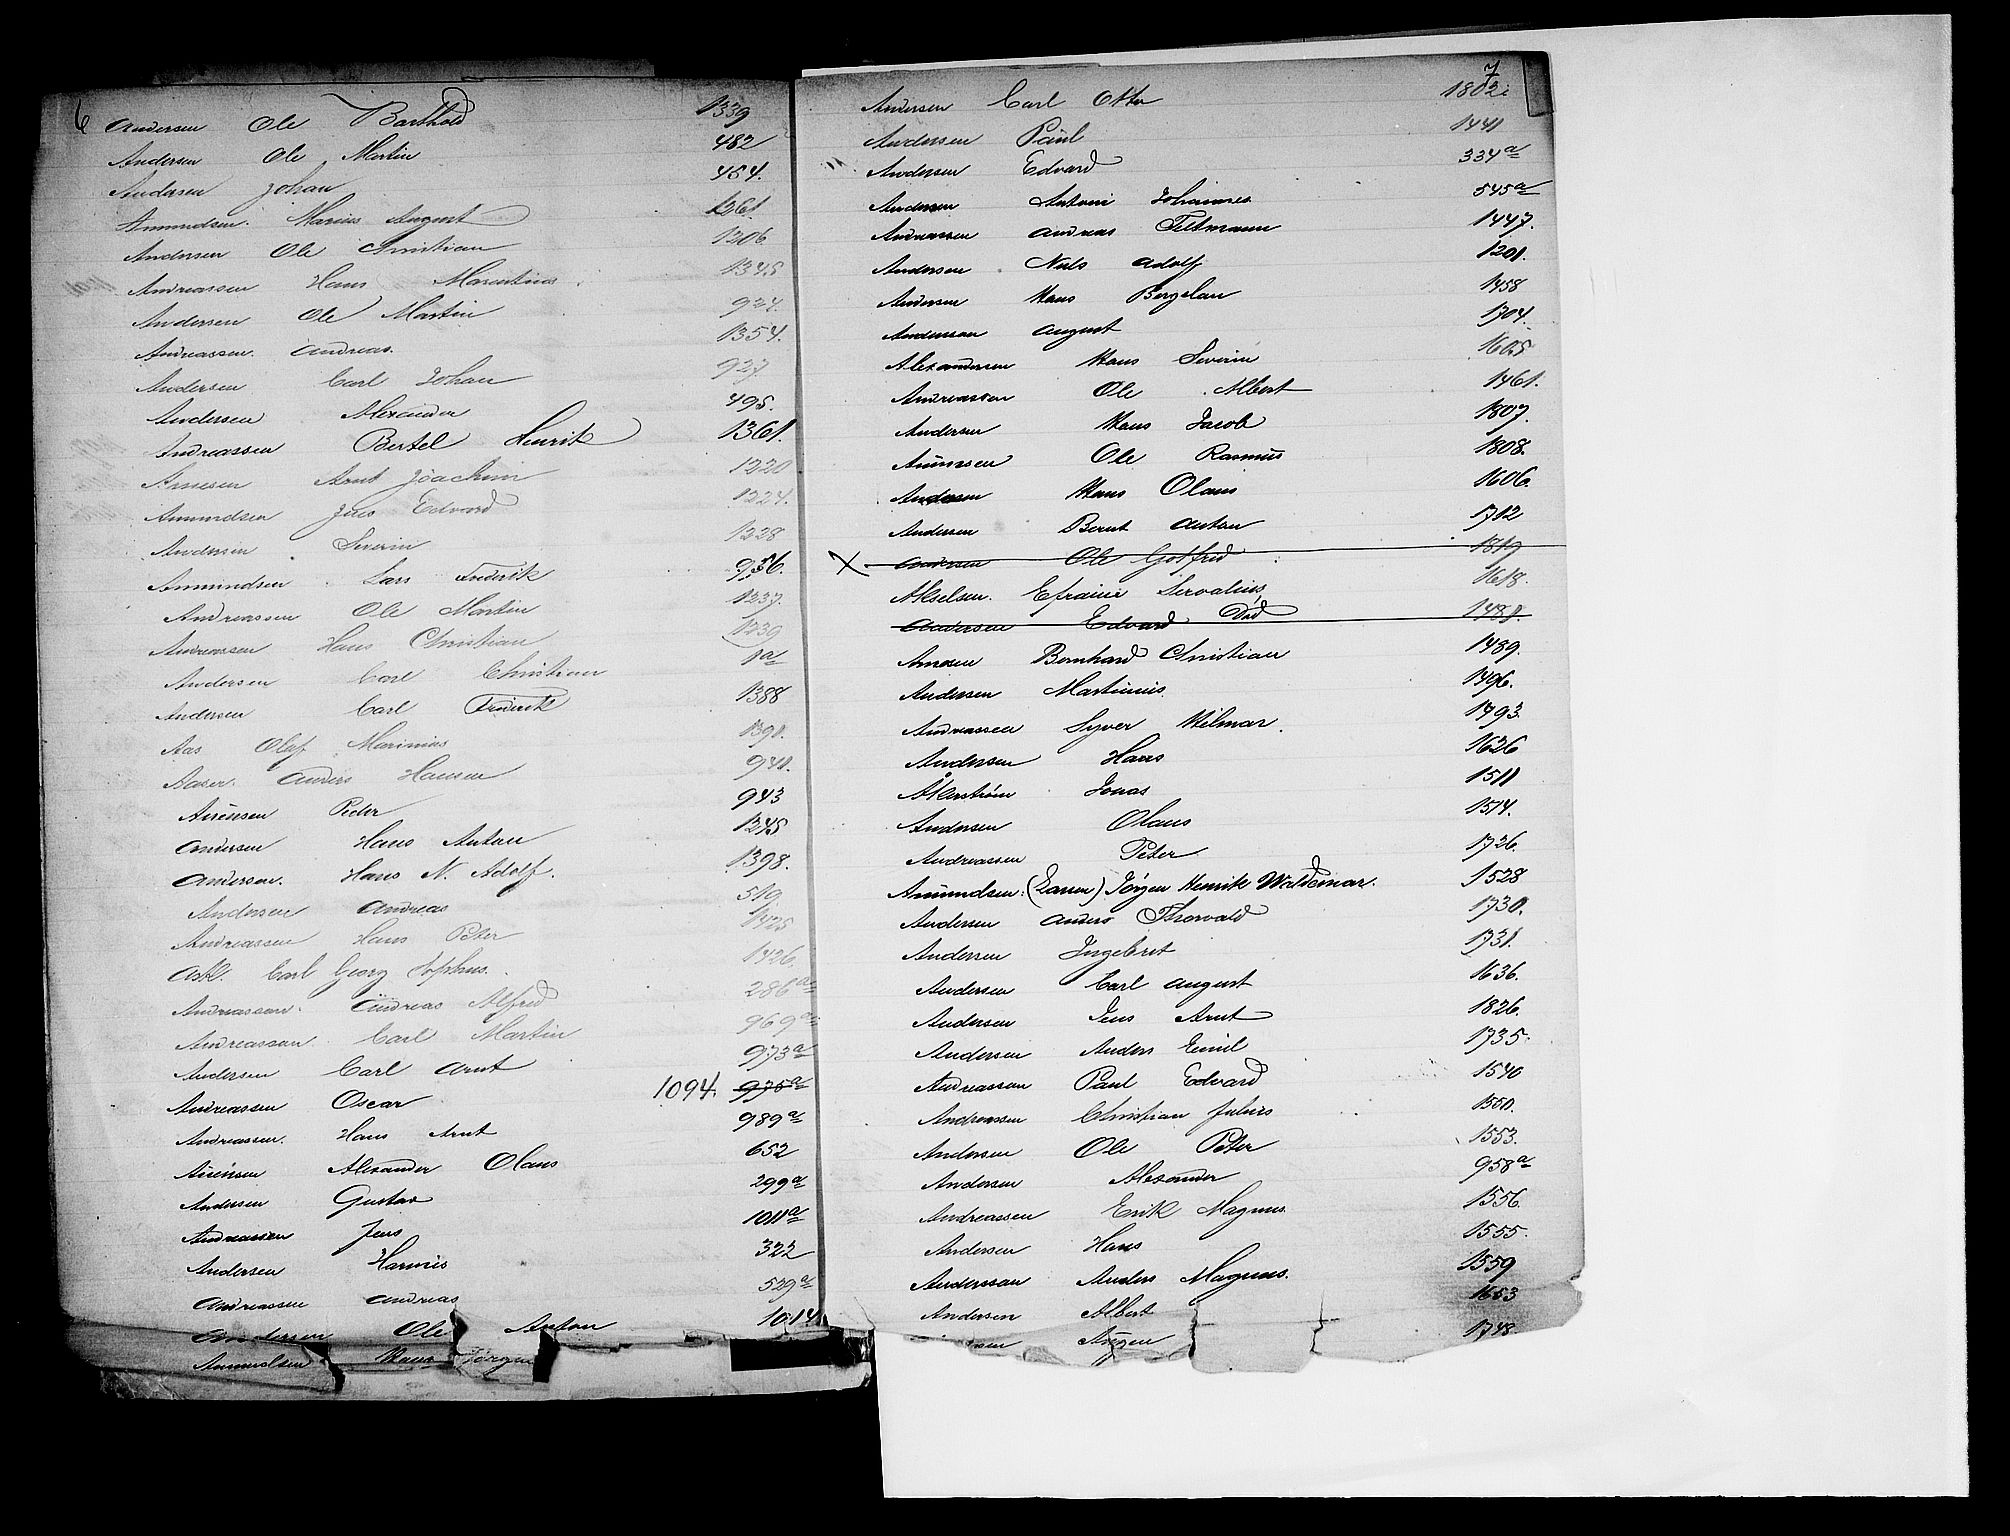 6
Andersen Ole Barthold 1339
Andersen Ole Martin 482
Andersen Johan 454.
Amundsen. Marius August 1261
Andersen Ole Christian 1206
Andreassen Hans Marentius 1345
Andersen Ole Martin 924.
Andreassen. Andreas. 1354.
Andersen Carl Johan 927
Andersen Alexander 495.
Andreassen Bertel Henrik 1361
Arnesen Arnt Joachim 1220
Amundsen Jens Edvard 1224.
Andersen Severin 1228
Ammundsen Lars Frederik 936.
Andreassen Ole Martin 1237.
Andreassen Hans Christian 1239
Andersen Carl Christian 1a
Andersen Carl Frederik 1388
Aas Olaf Marinius 1391.
Aaser. Anders Hansen 941.
Peder 943
Andersen Hans Anton 1245
Andersen. Hans N. Adolf. 1398.
Andersen Andreas 519
Andreassen Hans Peter 1425
Ask. Carl Georg Sophus. 1426.
Andreassen. Andreas Alfred 286a
Andreassen. Carl Martin 969a
Andersen Carl Arnt 973a
Andreassen Oscar 1094. 975a
Andreassen. Hans Arnt 989a
Alexander Olaus 652
Andersen Gustav 299a
Andreassen Jens 1011a
Andersen 322
Andreassen Andreas 529a
Andersen Ole Anton 1014
Amundsen Hans Jörgen
7
Andersen Carl Otto 1802
Andersen Paul 1441
Andersen Edvard 334a
Andersen Antoni Johannes 545a
Andreassen Andreas Tiltmann 1447.
Andersen Nils Adolf 1201.
Andersen Hans Bergelan 1458
Andersson August 1704.
Alexandersen Hans Severin 1605
Andreassen Ole Albert 1461.
Andersen Hans Jacob 1807.
Ole Rasmus 1808.
Andersen Hans Olaus 1606.
Andersen Bernt Anton 1712
X Andersen Ole Gotfred 1819
Akselsen. Efraim Servatius, 1618.
Andersen Edvard Død 1488.
Arnesen Bernhard Christian 1489.
Andersen Martinius 1496.
Andreassen Syver Hilmar. 1493.
Andersen Hans 1626
Åkerstrøm Jonas 1511
Andersen Olaus 1514.
Andreassen Peter 1726.
Amundsen. (Larsen) Jörgen Henrik Waldemar. 1528
Andersen Anders Thorvald 1730.
Andersen Ingebret 1731.
Andersen Carl August 1636.
Andersen Jens Arnt 1826.
Andersen Anders Emil 1735.
Andreassen Paul Edvard 1540
Andreassen Christian Julius 1550.
Andersen Ole Peter 1553.
Andersen Alexander 958a
Andreassen Erik Magnus. 1556.
Andersen Hans 1555.
Anderssan Anders Magnus. 1559
Andersen Albert 1653
1748.